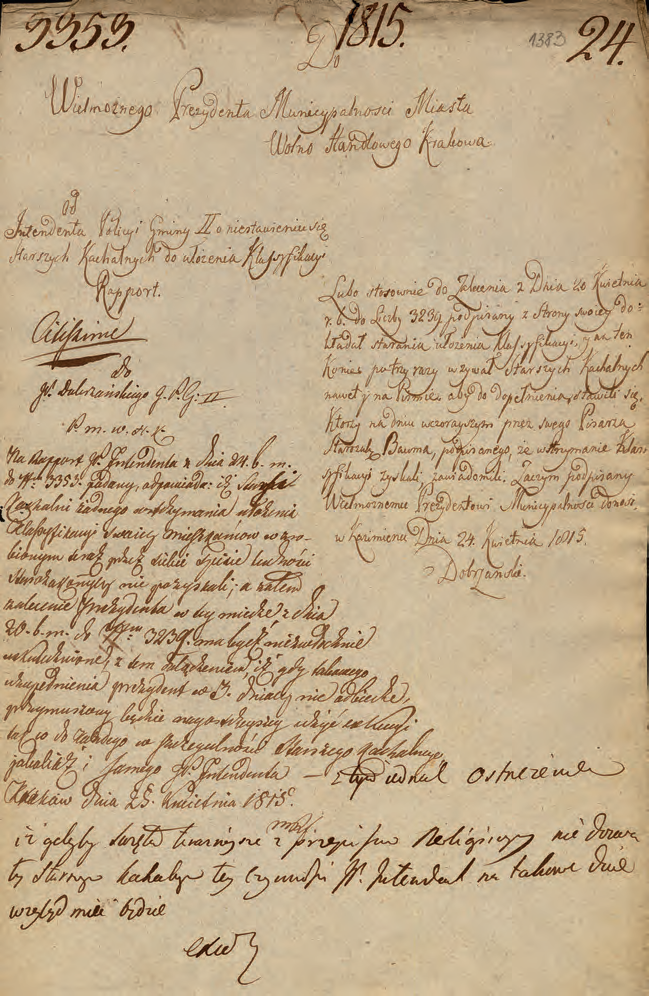 3353.
1815.
1383
24.
Do
Wielmożnego Prezydenta Municypalności Miasta
Wolno Handlowego Krakowa
od
Intendenta Policyi Gminy II o niestawienie się
starszych Kachalnych do ułożenia Klassyfikacyi
Rapport.
Lubo stosownie do Zalecenia z Dnia 20 Kwietnia
r. b. do Liczby 3239 podpisany z Strony swoiey do-
kładał starania ułożenia Klassyfikacyi, y na ten
Koniec po trzy razy wzywał Starszych Kachalnych
nawet y na Pismie, aby do dopełnienia stawili się,
Ktorzy na dniu wczorayszym przez swego Pisarza
Bauma, podpisanego, że wstrzymanie Klas-
syfikacyi zyskali, zawiadomili. Zaczym podpisany
Wielmożnemu Prezydentowi Municypalności donosi,
w Kazimierzu Dnia 24. Kwietnia 1815.
Dobrzański.
Citissime
do
JP. Dobrzańskiego J. P. G. II
P. m. w. H. K.
Na Rapport JP. Intendenta z dnia 24. b. m.
do Nr. 3353. podany, odpowiada: iż Starsi
Kachalni żadnego wstrzymania ułożenia
Klassyfikacyi swoich mieszkancow w zro-
bionym przez siebie Spisie ludności
nie pozyskali; a zatem
zalecenie Prezydenta w tey mierze z dnia
20. b. m. do 3239. ma bydź niezwłocznie
uskutecznione, z tem iż gdy takowego
uzupełnienia prezydent w 3. dniach nie odbierze,
przymuszony będzie użyć exekucyi
tak co do każdego w szczególności Starszego Kachalnego
jakoliteż i samego JP. Intendenta — z tym jednak ostrzeżeniem
Kraków dnia 25. Kwietnia 1815.
iż gdyby święta z przepisu Religiyny nie
tey Starszym Kahalnym tey czynności JP. Intendent na takowe dnie
wzgląd mieć będzie